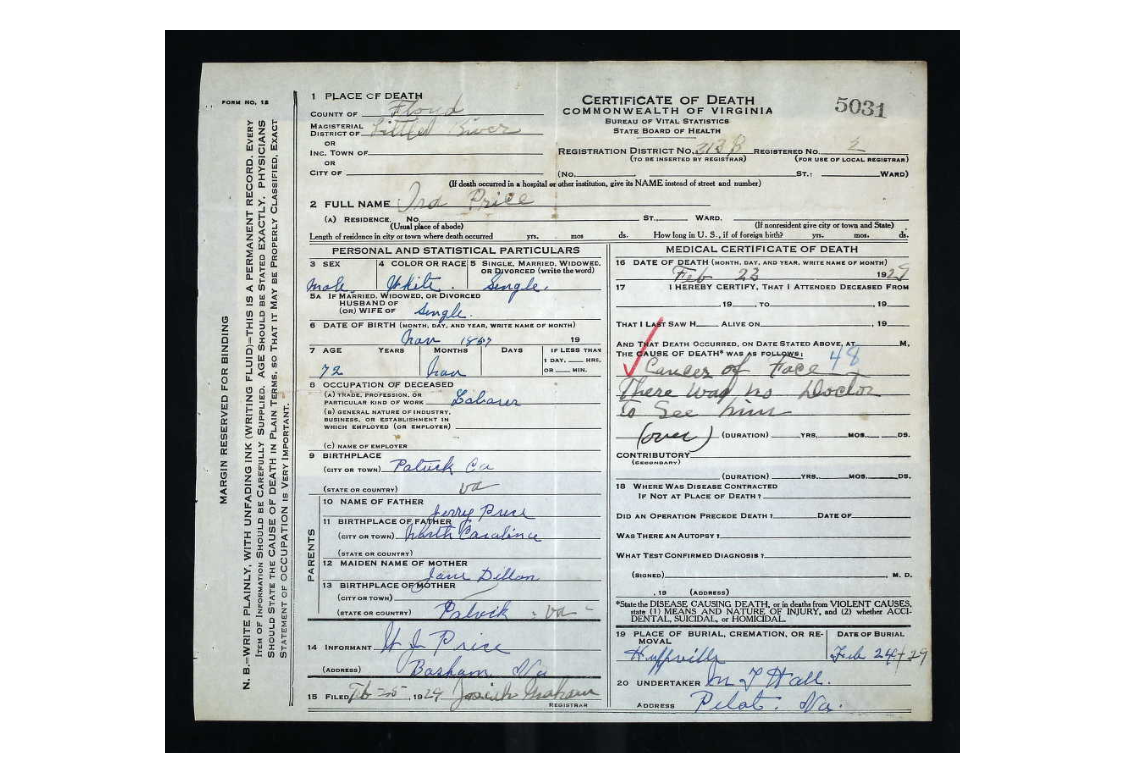 FORM NO. 12
MARGIN RESERVED FOR BINDING
N. B.—WRITE PLAINLY, WITH UNFADING INK (WRITING FLUID)—THIS IS A PERMANENT RECORD. EVERY
ITEM OF INFORMATION SHOULD BE CAREFULLY SUPPLIED. AGE SHOULD BE STATED EXACTLY. PHYSICIANS
SHOULD STATE THE CAUSE OF DEATH IN PLAIN TERMS, SO THAT IT MAY BE PROPERLY CLASSIFIED. EXACT
STATEMENT OF OCCUPATION IS VERY IMPORTANT.
1 PLACE OF DEATH
COUNTY OF Floyd
MAGISTERIAL
DISTRICT OF Little River
OR
INC. TOWN OF
OR
CITY OF
CERTIFICATE OF DEATH
COMMONWEALTH OF VIRGINIA
BUREAU OF VITAL STATISTICS
STATE BOARD OF HEALTH
5031
REGISTRATION DISTRICT NO. 313B REGISTERED NO. 2
(TO BE INSERTED BY REGISTRAR) (FOR USE OF LOCAL REGISTRAR)
(NO. ST.; WARD)
(If death occurred in a hospital or other institution, give its NAME instead of street and number)
2 FULL NAME Ira Price
(A) RESIDENCE. NO. ST., WARD.
(Usual place of abode) (If nonresident give city or town and State)
Length of residence in city or town where death occurred yrs. mos. ds. How long in U. S., if of foreign birth? yrs. mos. ds.
PERSONAL AND STATISTICAL PARTICULARS
3 SEX 4 COLOR OR RACE 5 SINGLE, MARRIED, WIDOWED,
OR DIVORCED (write the word)
male White. Single.
5A IF MARRIED, WIDOWED, OR DIVORCED
HUSBAND OF
(OR) WIFE OF Single.
6 DATE OF BIRTH (MONTH, DAY, AND YEAR, WRITE NAME OF MONTH)
19
7 AGE YEARS MONTHS DAYS IF LESS THAN
1 DAY, HRS.
OR MIN.
72
8 OCCUPATION OF DECEASED
(A) TRADE, PROFESSION, OR
PARTICULAR KIND OF WORK Labarer
(B) GENERAL NATURE OF INDUSTRY,
BUSINESS, OR ESTABLISHMENT IN
WHICH EMPLOYED (OR EMPLOYER)
(C) NAME OF EMPLOYER
9 BIRTHPLACE
(CITY OR TOWN) Patrick Co
(STATE OR COUNTRY) Va
PARENTS
10 NAME OF FATHER
Jerry Price
11 BIRTHPLACE OF FATHER
(CITY OR TOWN) North Caralina
(STATE OR COUNTRY)
12 MAIDEN NAME OF MOTHER
Jane Dillon
13 BIRTHPLACE OF MOTHER
(CITY OR TOWN)
(STATE OR COUNTRY) Va
14 INFORMANT W J Price
(ADDRESS) Basham Va
15 FILED Feb 25, 1929 Josiah Graham
REGISTRAR
MEDICAL CERTIFICATE OF DEATH
16 DATE OF DEATH (MONTH, DAY, AND YEAR, WRITE NAME OF MONTH)
Feb 23 1929
17 I HEREBY CERTIFY, THAT I ATTENDED DECEASED FROM
, 19 , TO , 19
THAT I LAST SAW H ALIVE ON , 19
AND THAT DEATH OCCURRED, ON DATE STATED ABOVE, AT M.
THE CAUSE OF DEATH* WAS AS FOLLOWS:
Cancer of Face 48
There was no Doctor
to See him
(over) (DURATION) YRS. MOS. DS.
CONTRIBUTORY
(SECONDARY)
(DURATION) YRS. MOS. DS.
18 WHERE WAS DISEASE CONTRACTED
IF NOT AT PLACE OF DEATH?
DID AN OPERATION PRECEDE DEATH? DATE OF
WAS THERE AN AUTOPSY?
WHAT TEST CONFIRMED DIAGNOSIS?
(SIGNED) M. D.
, 19 (ADDRESS)
*State the DISEASE CAUSING DEATH, or in deaths from VIOLENT CAUSES,
state (1) MEANS AND NATURE OF INJURY, and (2) whether ACCI-
DENTAL, SUICIDAL, or HOMICIDAL.
19 PLACE OF BURIAL, CREMATION, OR RE- DATE OF BURIAL
MOVAL
Huffville Feb 24 29
20 UNDERTAKER M T Hall.
ADDRESS Pilot. Va.